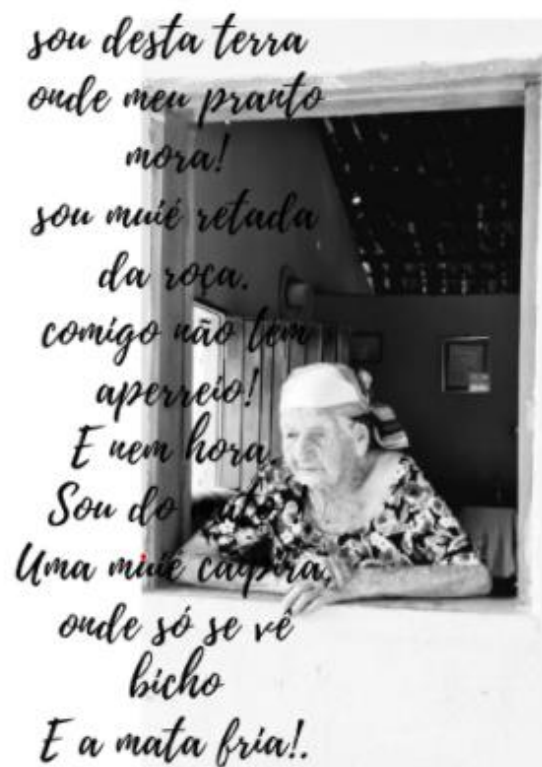 sou desta terra
onde meu pranto
mora!
sou muié retada
da roça.
comigo não tem
aperreio!
E nem hora.
Sou do
Uma muié caipira,
onde só se vê
bicho
E a mata fria!.